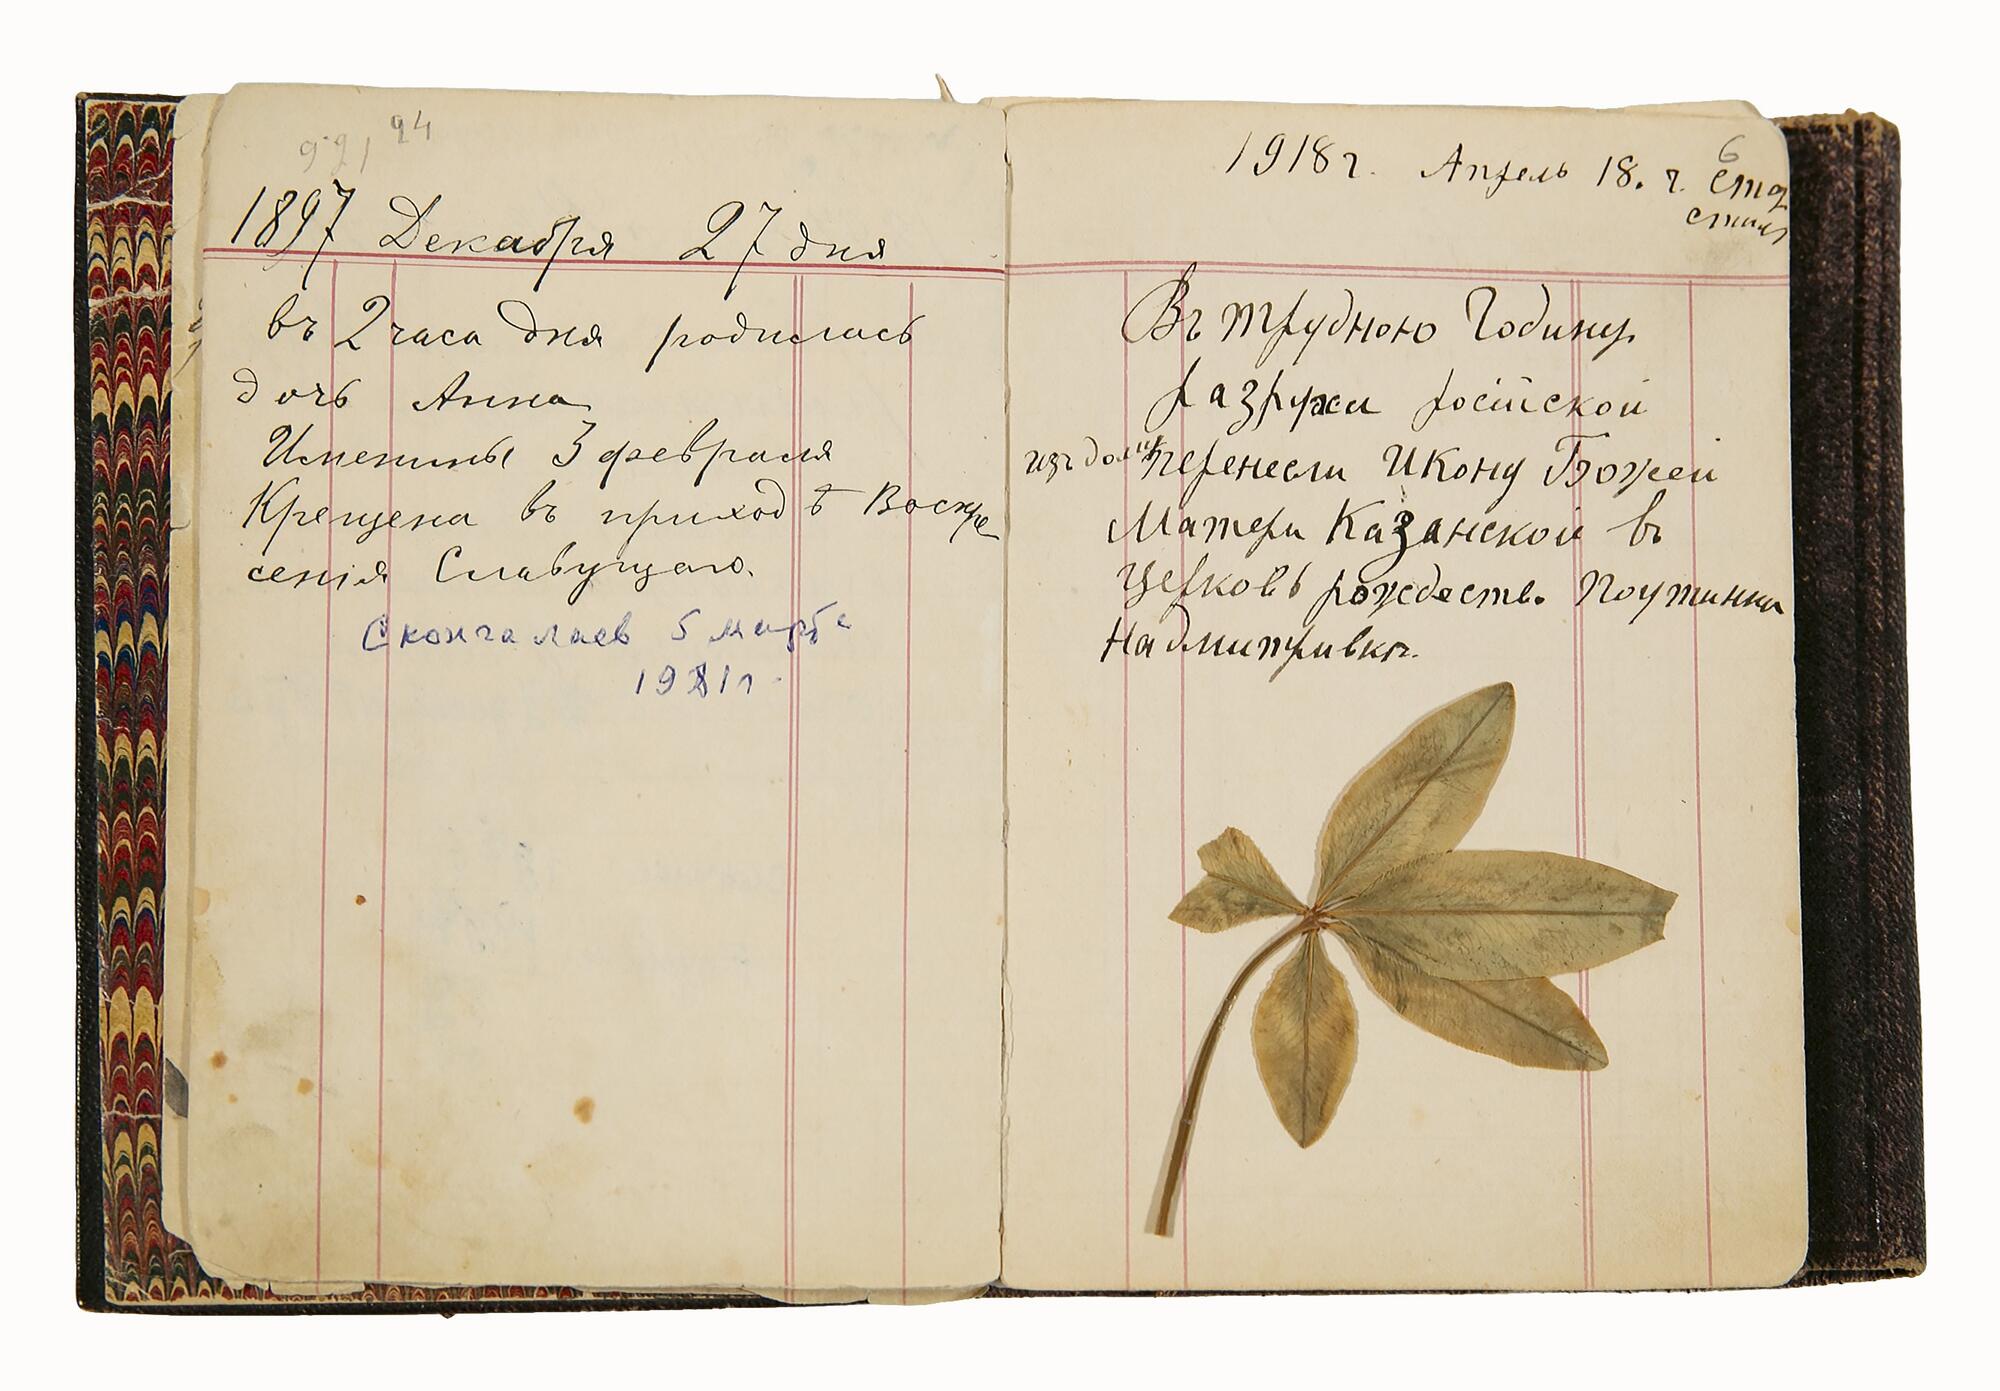 1897 Декабря 27 дня
въ 2 часа дня родилась
дочь Анна
Именины 3 февраля
Крещена въ приходѣ Воскре
сенія Славущаго.
Скончалась 5 марта
1981 г.
6
1918 г. Апрель 18. г. стар
стиль
Въ трудною Годину
разрухи російской
изъ дому перенесли Икону Божей
Матери Казанской въ
Церковь рождеств. Поутинки
На дмитривкѣ.